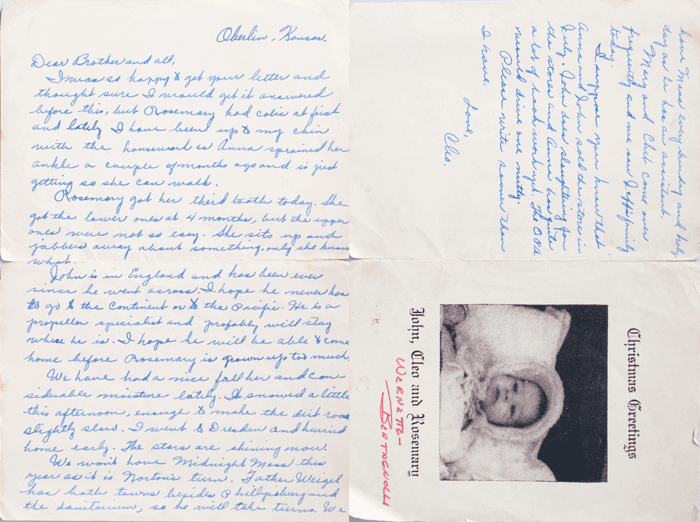 Oberlin, Kansas.
Dear Brother and all,
I was so happy to get your letter and
thought sure I would get it answered
before this, but Rosemary had colic at first
and lately I have been up to my chin
with the housework as Anna sprained her
ankle a couple of months ago and is just
getting so she can walk.
Rosemary got her third tooth today. She
got the lower ones at 4 months, but the upper
ones were not so easy. She sits up and
jabbers away about something, only she knows
what.
John is in England and has been ever
since he went across. I hope he never has
to go to the Continent or to the Pacific. He is a
propeller specialist and probably will stay
where he is. I hope he will be able to come
home before Rosemary is grown up too much.
We have had a nice fall here and con
siderable moisture lately. It snowed a little
this afternoon, enough to make the dirt road
slightly slars. I went to Dresden and hurried
home early. The stars are shining now.
We won't have Midnight Mass this
year as it is Norton's turn. Father Weigel
has both towns besides Phillipsburg and
the Sanitarium, so he will take turns. We
have Mass every Sunday and holy
day as he has an assistant.
Mary and Chet come over
frequently and me and family
today.
I suppose you know that
Anna and John sold the store in
July. John does slaughtering for
the stores and Anna has quite
a lot of work. The
would drive one nutty.
Please write sooner than
I have.
Love,
Cleo.
Christmas Greetings
John, Cleo and Rosemary
WERNETTE-
BERTAGNOLLI